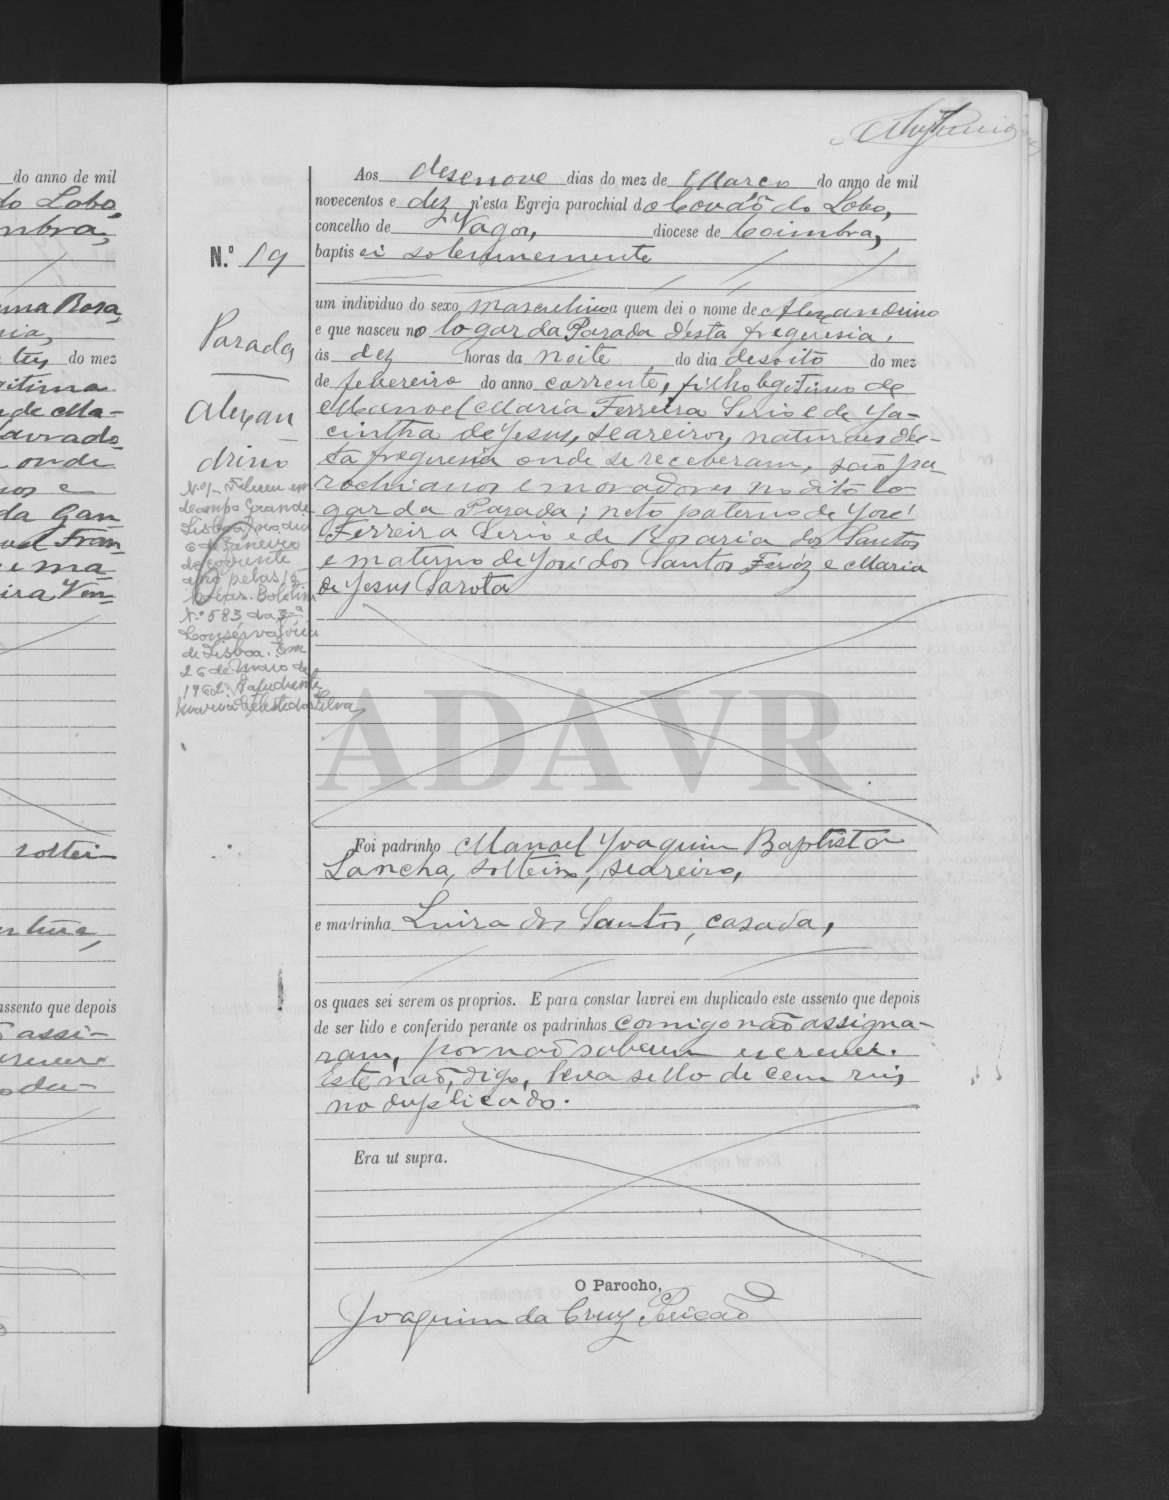 do anno de mil
do Lobo,
mbra,
Rosa,
do mez
itima
de Ma-
lavrado
onde
Fran-
e ma-
solteir
assento que depois
assi-
Aos desenove dias do mez de Março do anno de mil
novecentos e dez n'esta Egreja parochial do Covão do Lobo,
concelho de Vagos, diocese de Coimbra,
N.º 19
baptisei solemnemente
um individuo do sexo masculino a quem dei o nome de Alexandrino
e que nasceu no logar da Parada d'esta freguesia,
Parada
ás dez horas da noite do dia desoito do mez
de fevereiro do anno corrente, filho legitimo de
Alexan
drino
Manoel Maria Ferreira Serio e de Ja-
cintha de Jesus, seareiros, naturaes d'es-
ta freguesia onde se receberam, são pa
rochianos e moradores no dito lo-
gar da Parada; neto paterno de José
Ferreira Serio e de Rosaria dos Santos
e materno de José dos Santos e Maria
de Jesus Sarota
N.º 1 - Faleceu em
Campo Grande
Lisboa, no dia
6 de Janeiro
do corrente
ano pelas
horas. Boletim
N.º 583 da 3ª
Conservatoria
de Lisboa. Em
26 de Maio de
1962. A ajudante
Maria Celeste da Silva
ADAVR
Foi padrinho Manoel Joaquim Baptista
Lancha, solteiro, seareiro,
e madrinha Luiza dos Santos, casada,
os quaes sei serem os proprios. E para constar lavrei em duplicado este assento que depois
de ser lido e conferido perante os padrinhos comigo não assigna-
ram, por não saberem escrever.
Este não, digo, leva sello de cem reis
no duplicado.
Era ut supra.
O Parocho,
Joaquim da Cruz